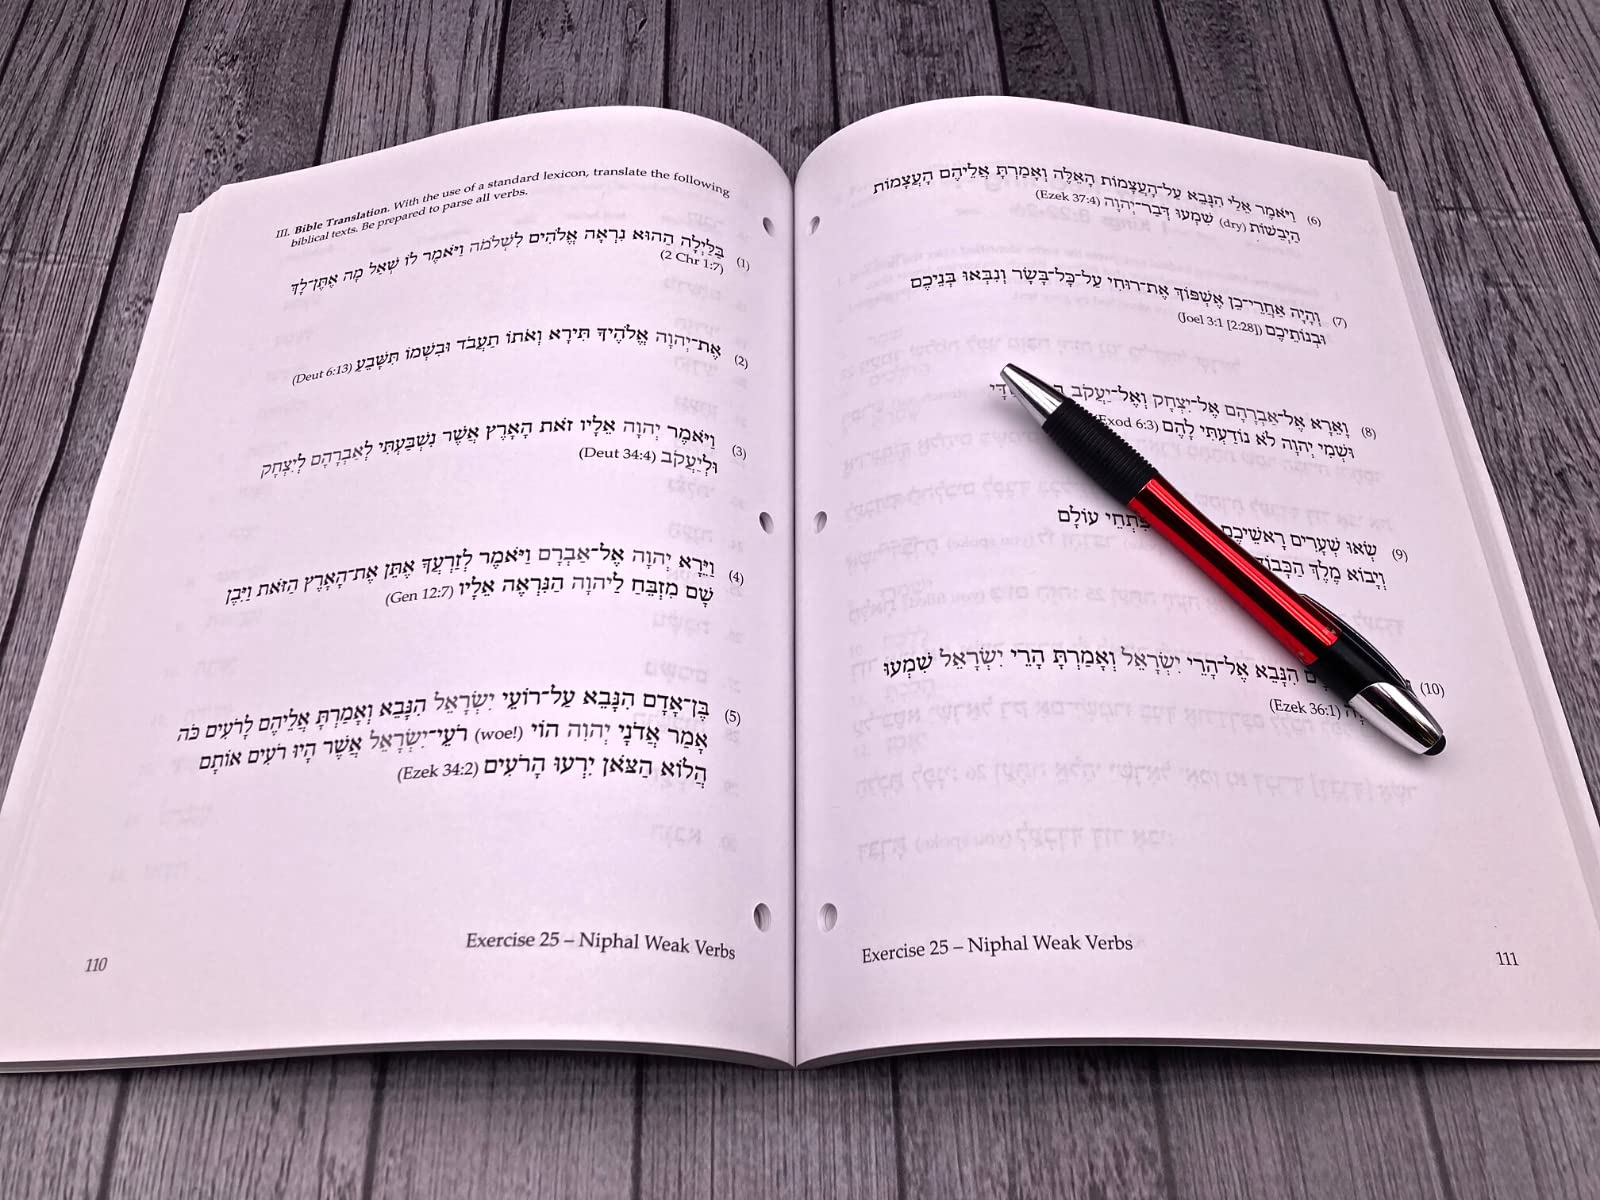 III. Bible Translation. With the use of a standard lexicon, translate the following
biblical texts. Be prepared to parse all verbs.
(1) בַּלַּיְלָה הַהוּא נִרְאָה אֱלֹהִים לִשְׁלֹמֹה וַיֹּאמֶר לוֹ שְׁאַל מָה אֶתֶּן־לָךְ
(2 Chr 1:7)
(2) אֶת־יְהוָה אֱלֹהֶיךָ תִּירָא וְאֹתוֹ תַעֲבֹד וּבִשְׁמוֹ תִּשָּׁבֵעַ (Deut 6:13)
(3) וַיֹּאמֶר יְהוָה אֵלָיו זֹאת הָאָרֶץ אֲשֶׁר נִשְׁבַּעְתִּי לְאַבְרָהָם לְיִצְחָק
וּלְיַעֲקֹב (Deut 34:4)
(4) וַיֵּרָא יְהוָה אֶל־אַבְרָם וַיֹּאמֶר לְזַרְעֲךָ אֶתֵּן אֶת־הָאָרֶץ הַזֹּאת וַיִּבֶן
שָׁם מִזְבֵּחַ לַיהוָה הַנִּרְאֶה אֵלָיו (Gen 12:7)
(5) בֶּן־אָדָם הִנָּבֵא עַל־רוֹעֵי יִשְׂרָאֵל הִנָּבֵא וְאָמַרְתָּ אֲלֵיהֶם לָרֹעִים כֹּה
אָמַר אֲדֹנָי יְהוִה הוֹי (woe!) רֹעֵי־יִשְׂרָאֵל אֲשֶׁר הָיוּ רֹעִים אוֹתָם
הֲלוֹא הַצֹּאן יִרְעוּ הָרֹעִים (Ezek 34:2)
Exercise 25 – Niphal Weak Verbs
110
(6) וַיֹּאמֶר אֵלַי הִנָּבֵא עַל־הָעֲצָמוֹת הָאֵלֶּה וְאָמַרְתָּ אֲלֵיהֶם הָעֲצָמוֹת
הַיְבֵשׁוֹת (dry) שִׁמְעוּ דְּבַר־יְהוָה (Ezek 37:4)
(7) וְהָיָה אַחֲרֵי־כֵן אֶשְׁפּוֹךְ אֶת־רוּחִי עַל־כָּל־בָּשָׂר וְנִבְּאוּ בְּנֵיכֶם
וּבְנוֹתֵיכֶם (Joel 3:1 [2:28])
(8) וָאֵרָא אֶל־אַבְרָהָם אֶל־יִצְחָק וְאֶל־יַעֲקֹב
וּשְׁמִי יְהוָה לֹא נוֹדַעְתִּי לָהֶם (Exod 6:3)
(9) שְׂאוּ שְׁעָרִים רָאשֵׁיכֶם פִּתְחֵי עוֹלָם
וְיָבוֹא מֶלֶךְ הַכָּבוֹד
(10) הִנָּבֵא אֶל־הָרֵי יִשְׂרָאֵל וְאָמַרְתָּ הָרֵי יִשְׂרָאֵל שִׁמְעוּ
(Ezek 36:1)
Exercise 25 – Niphal Weak Verbs
111